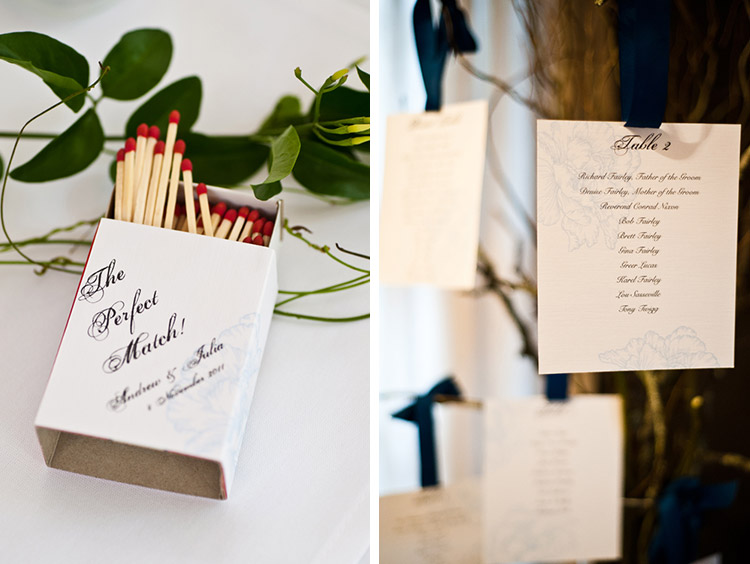 The
Perfect
Match!
Andrew & Julia
November 2011
Table 2
Richard Fairley, Father of the Groom
Denise Fairley, Mother of the Groom
Reverend Conrad Nixon
Bob Fairley
Brett Fairley
Gina Fairley
Greer Lucas
Kard Fairley
Lou Sasseville
Tony Twigg